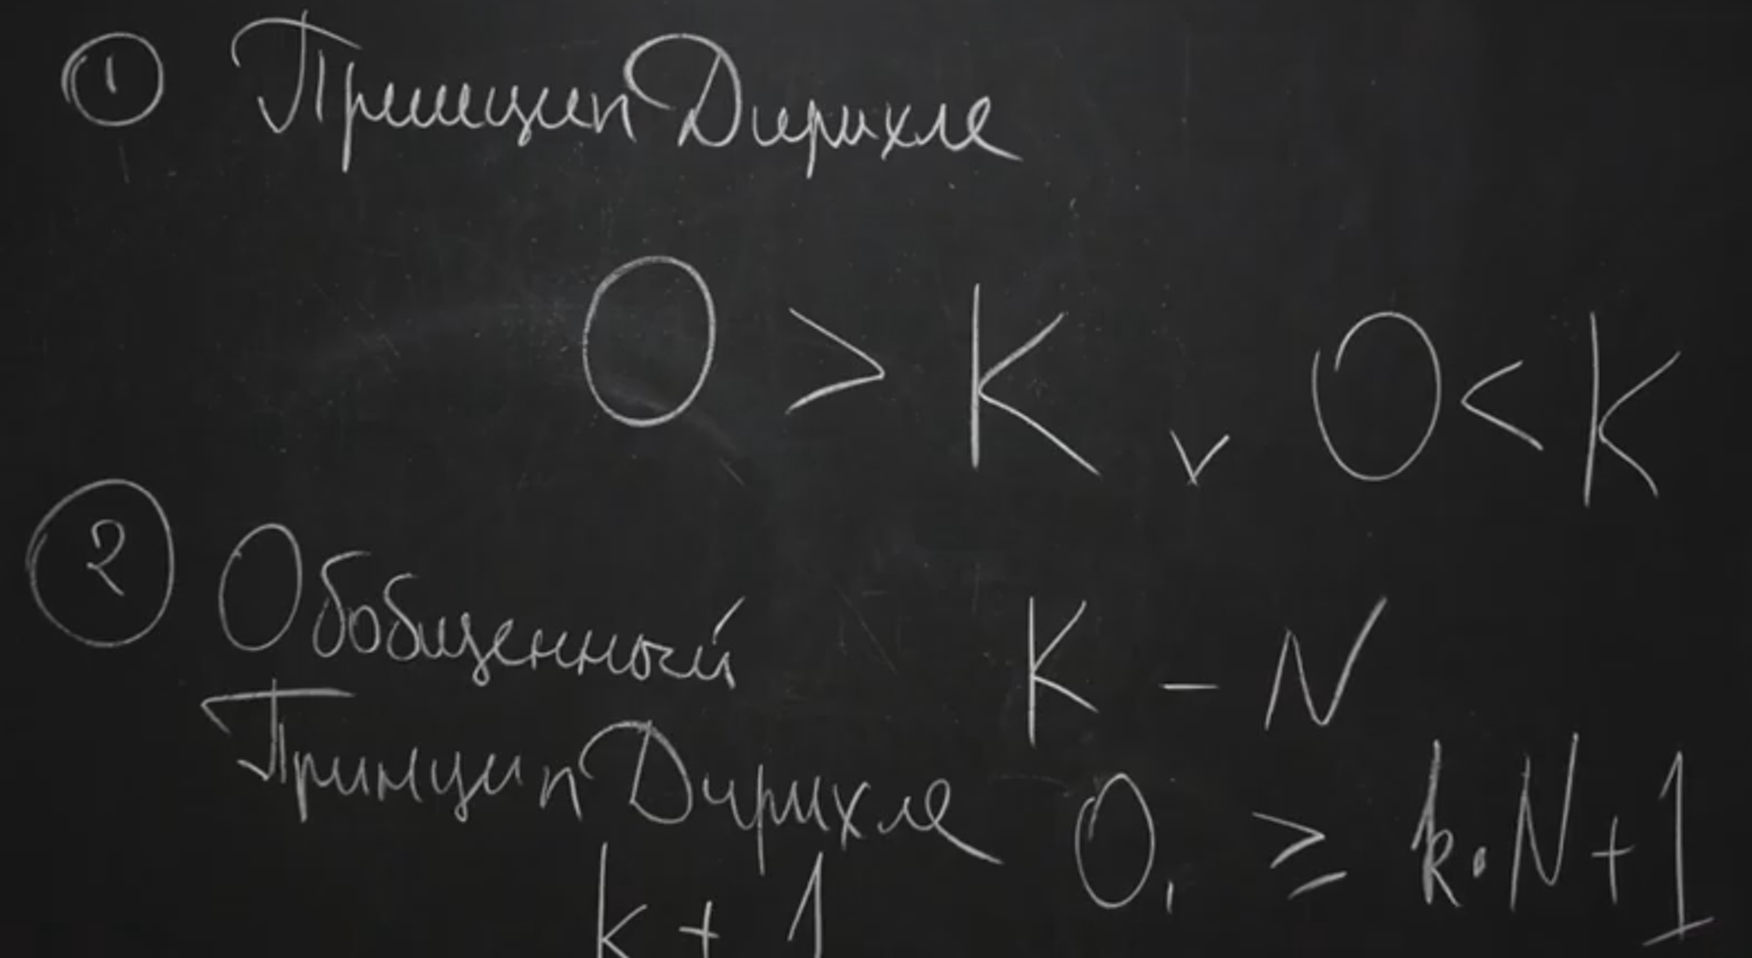 ① Принцип Дирихле
O > K ∨ O < K
② Обобщенный
K - N
Принцип Дирихле
O, ≥ k·N+1
k + 1